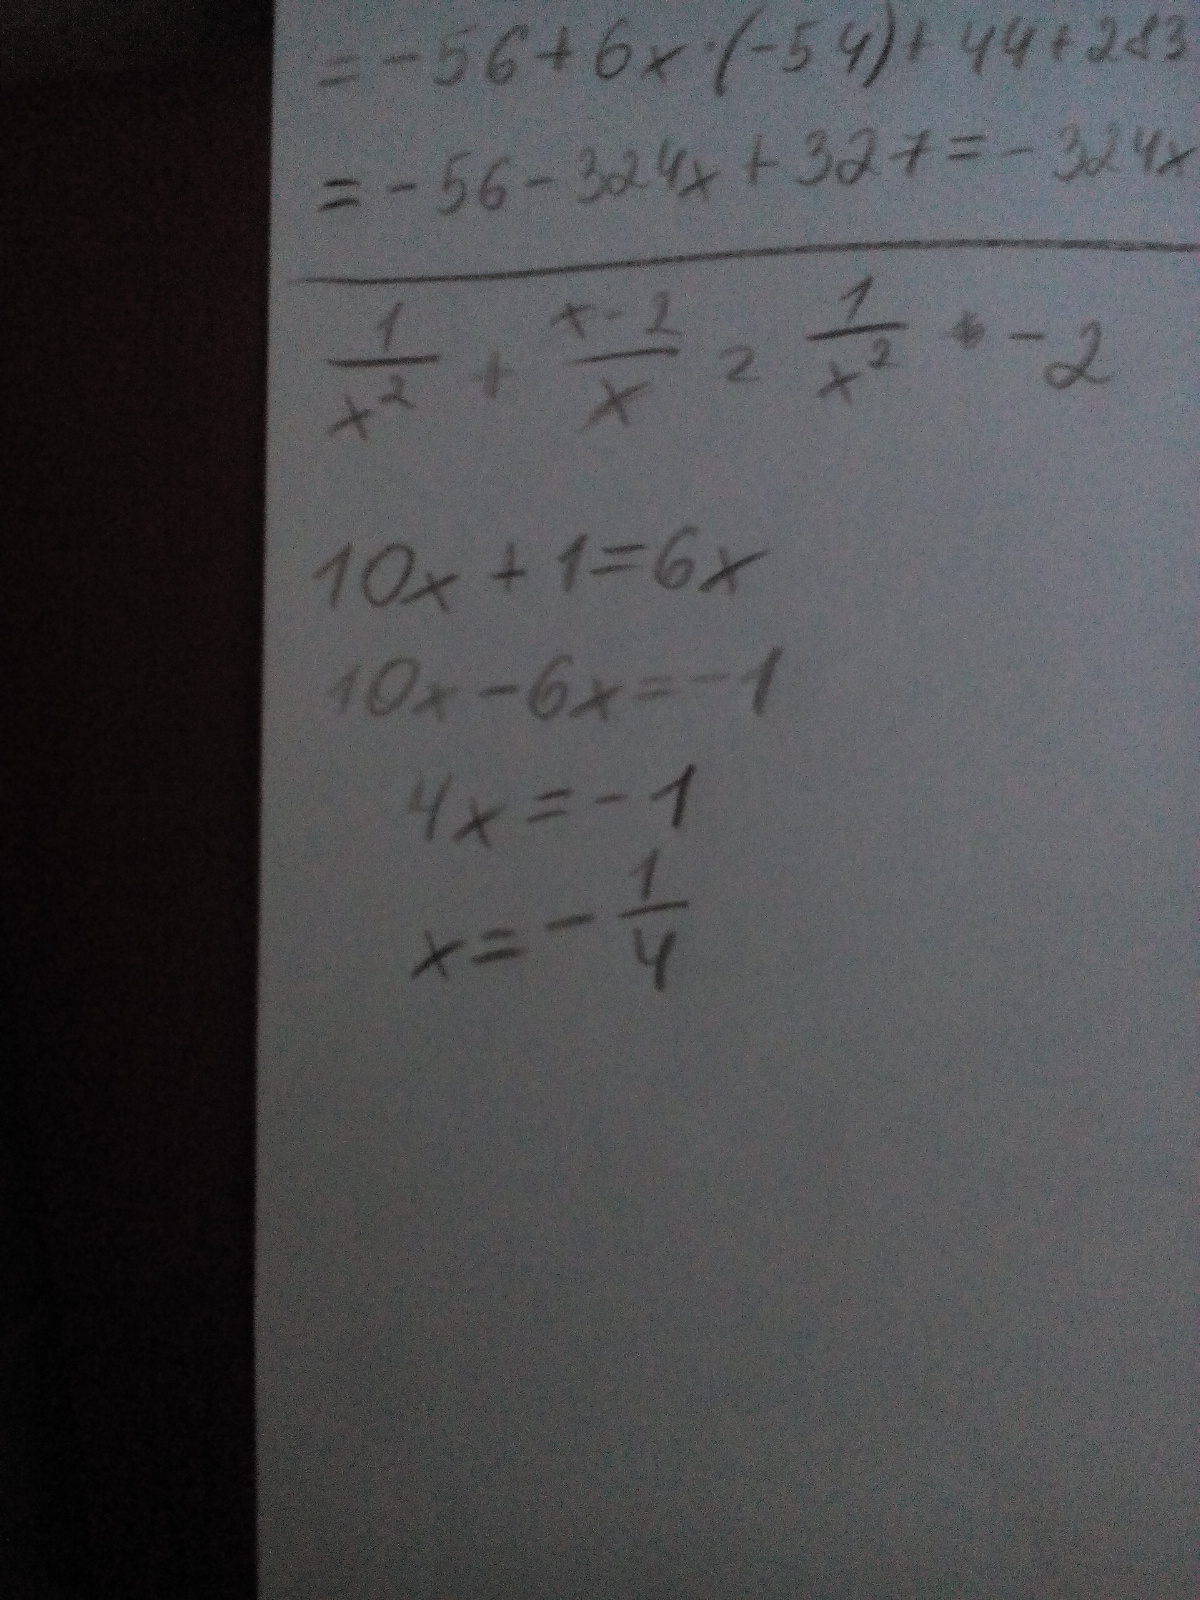 = -56 + 6x · (-54) + 44 + 283
= -56 - 324x + 327 = -324x
1/x² + x-2/x = 1/x² - 2
10x + 1 = 6x
10x - 6x = -1
4x = -1
x = - 1/4